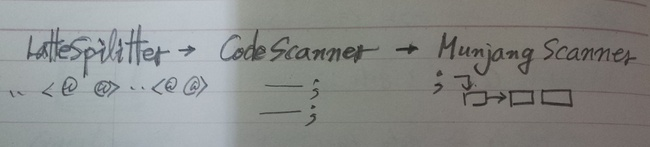 LatteSpilitter → CodeScanner → Munjang Scanner
.. <@ @> .. <@ @> ; ;
;